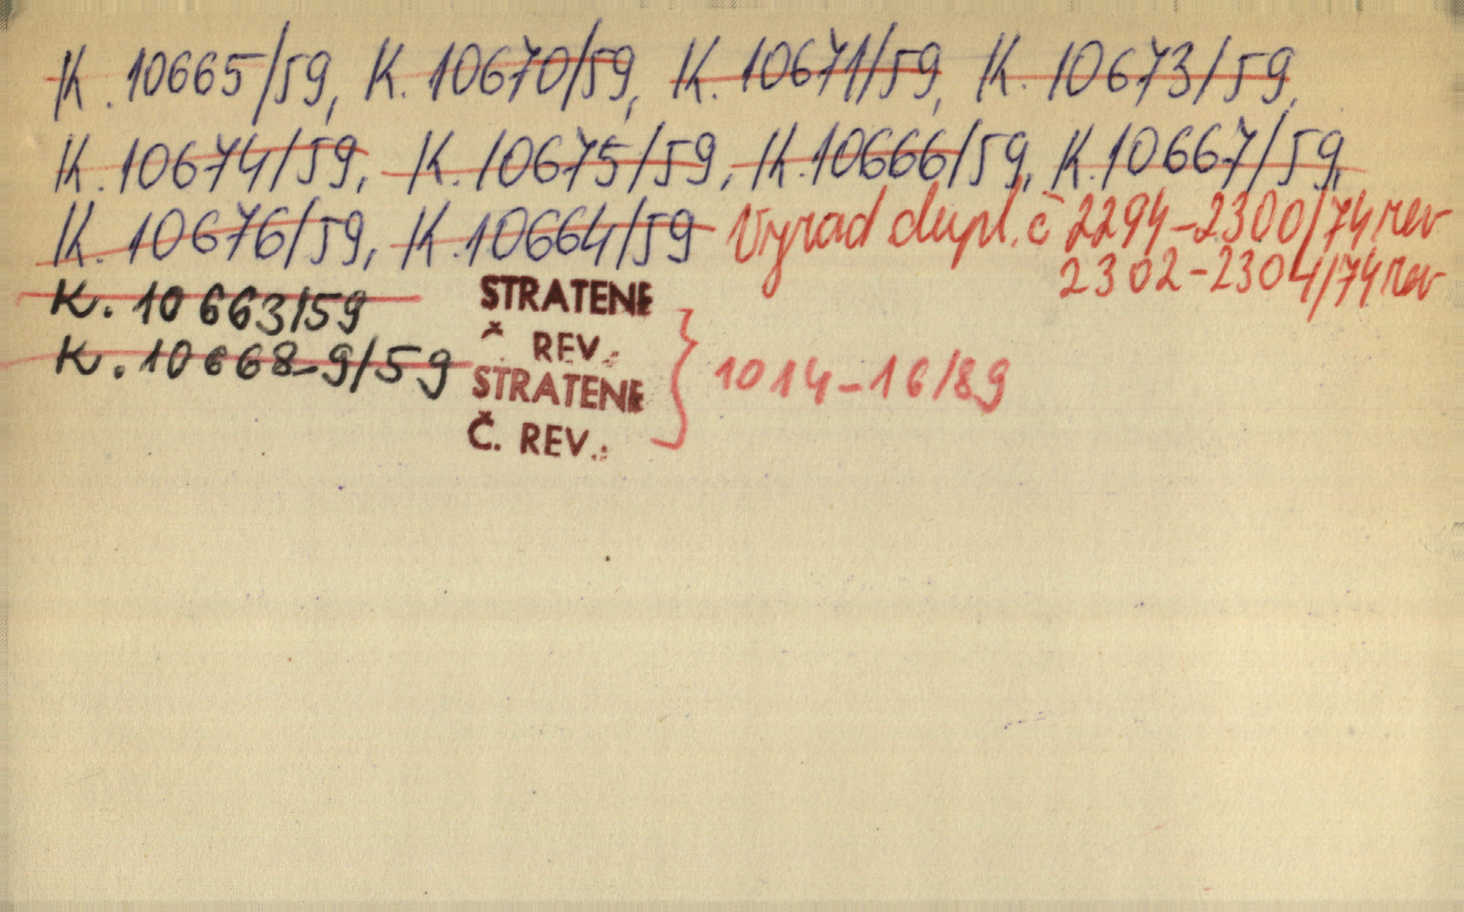 K. 10665/59, K. 10670/59, K. 10671/59, K. 10673/59,
K. 10674/59, K. 10675/59, K. 10666/59, K. 10667/59,
K. 10676/59, K. 10664/59 Vyrad dupl. č 2294-2300/74 rev
2302-2304/74 rev
K. 10663/59 STRATENE
Č REV.:
K. 10668-9/59 STRATENE
Č. REV.:
1014-16/89